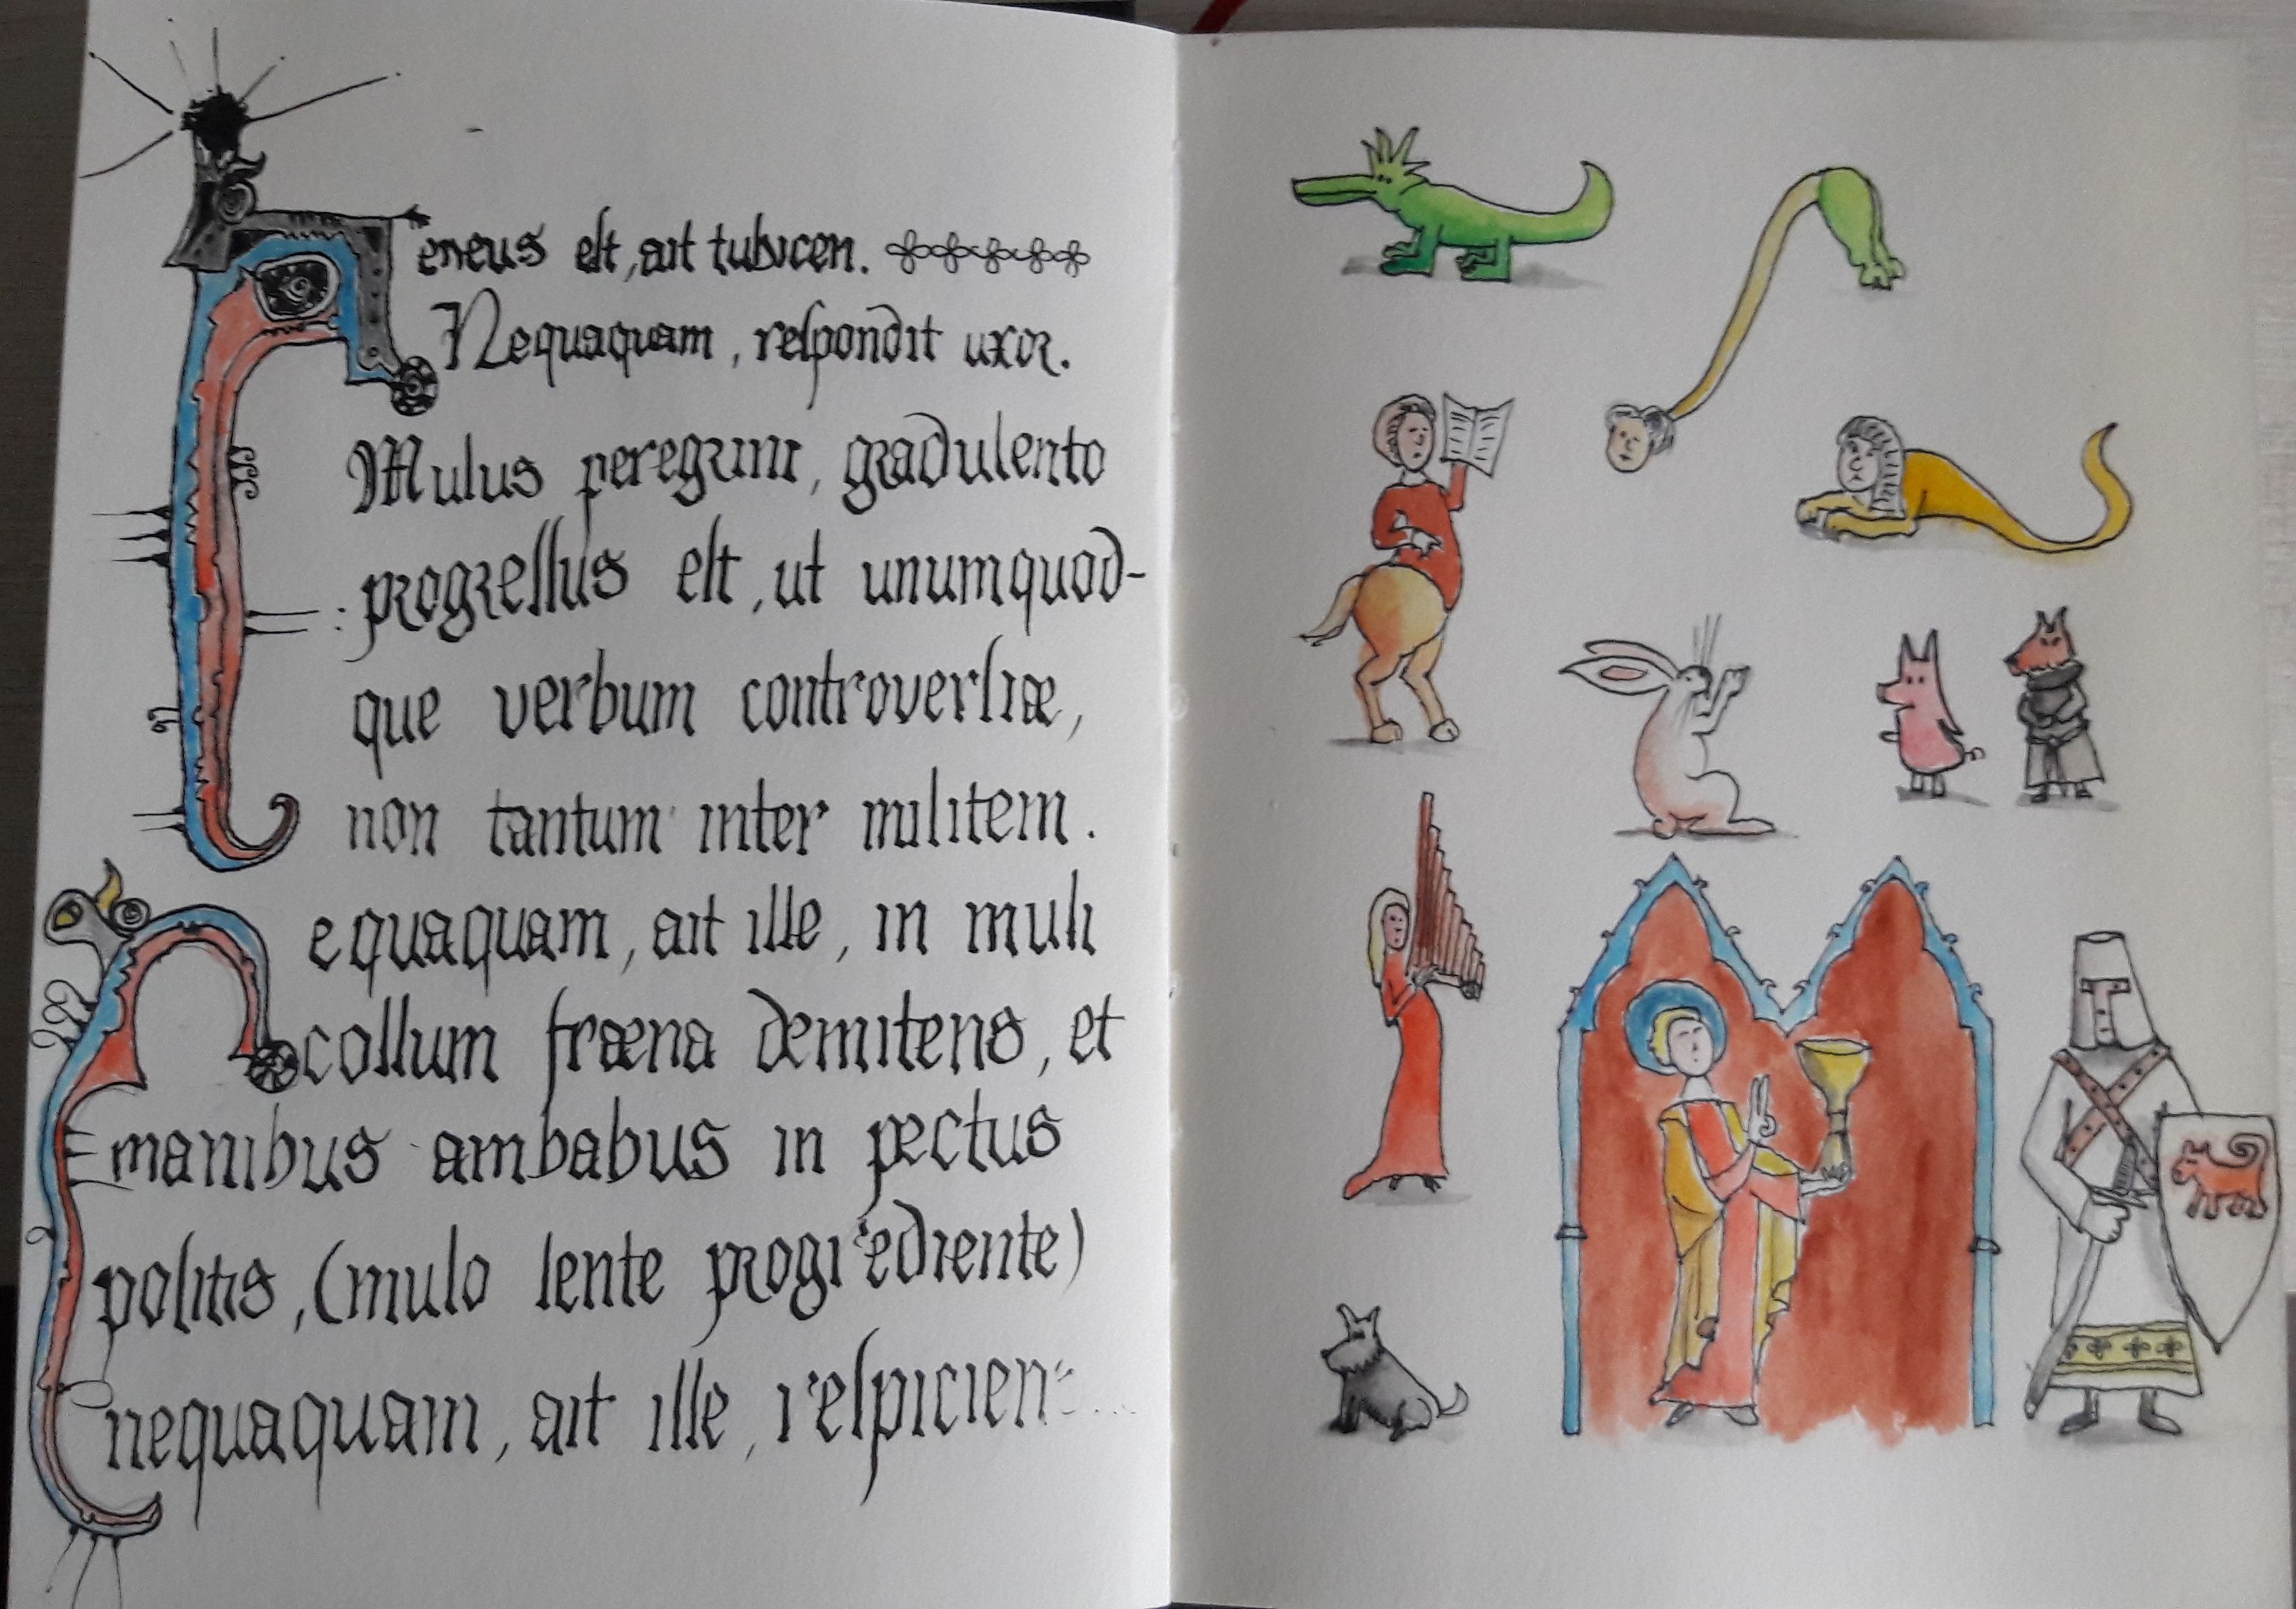 eneus eſt, ait tubicen.
Nequaquam, reſpondit uxor.
Mulus peregrini, gradulento
progreſſus eſt, ut unumquod-
que verbum controverſiæ,
non tantum inter militem.
equaquam, ait ille, in muli
collum fræna demitens, et
manibus ambabus in pectus
poſitis, (mulo lente progrediente)
nequaquam, ait ille, reſpicien